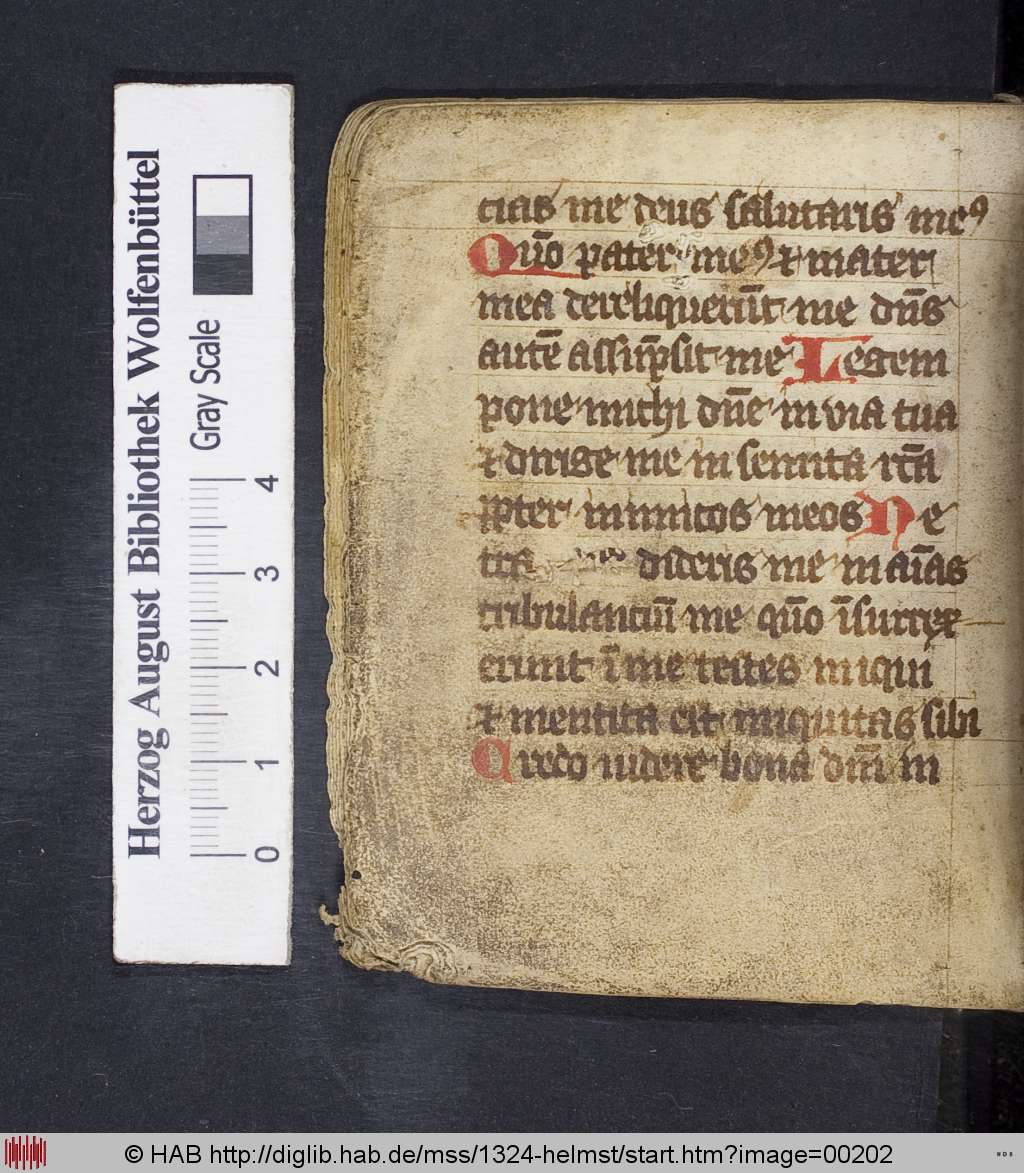 Herzog August Bibliothek Wolfenbüttel
Gray Scale
0 1 2 3 4
cias me deus salutaris meꝰ
Quō pater meꝰ ⁊ mater
mea dereliquerūt me dn̄s
autē assūpsit me Legem
pone michi dn̄e in via tua
⁊ dirige me in semita rc̄a
ꝓpter inimicos meos Ne
dideris me in aīas
tribulanciū me quō īsurrex
erunt ī me testes iniqui
⁊ mentita est iniquitas sibi
Credo uidere bona dn̄i in
© HAB http://diglib.hab.de/mss/1324-helmst/start.htm?image=00202